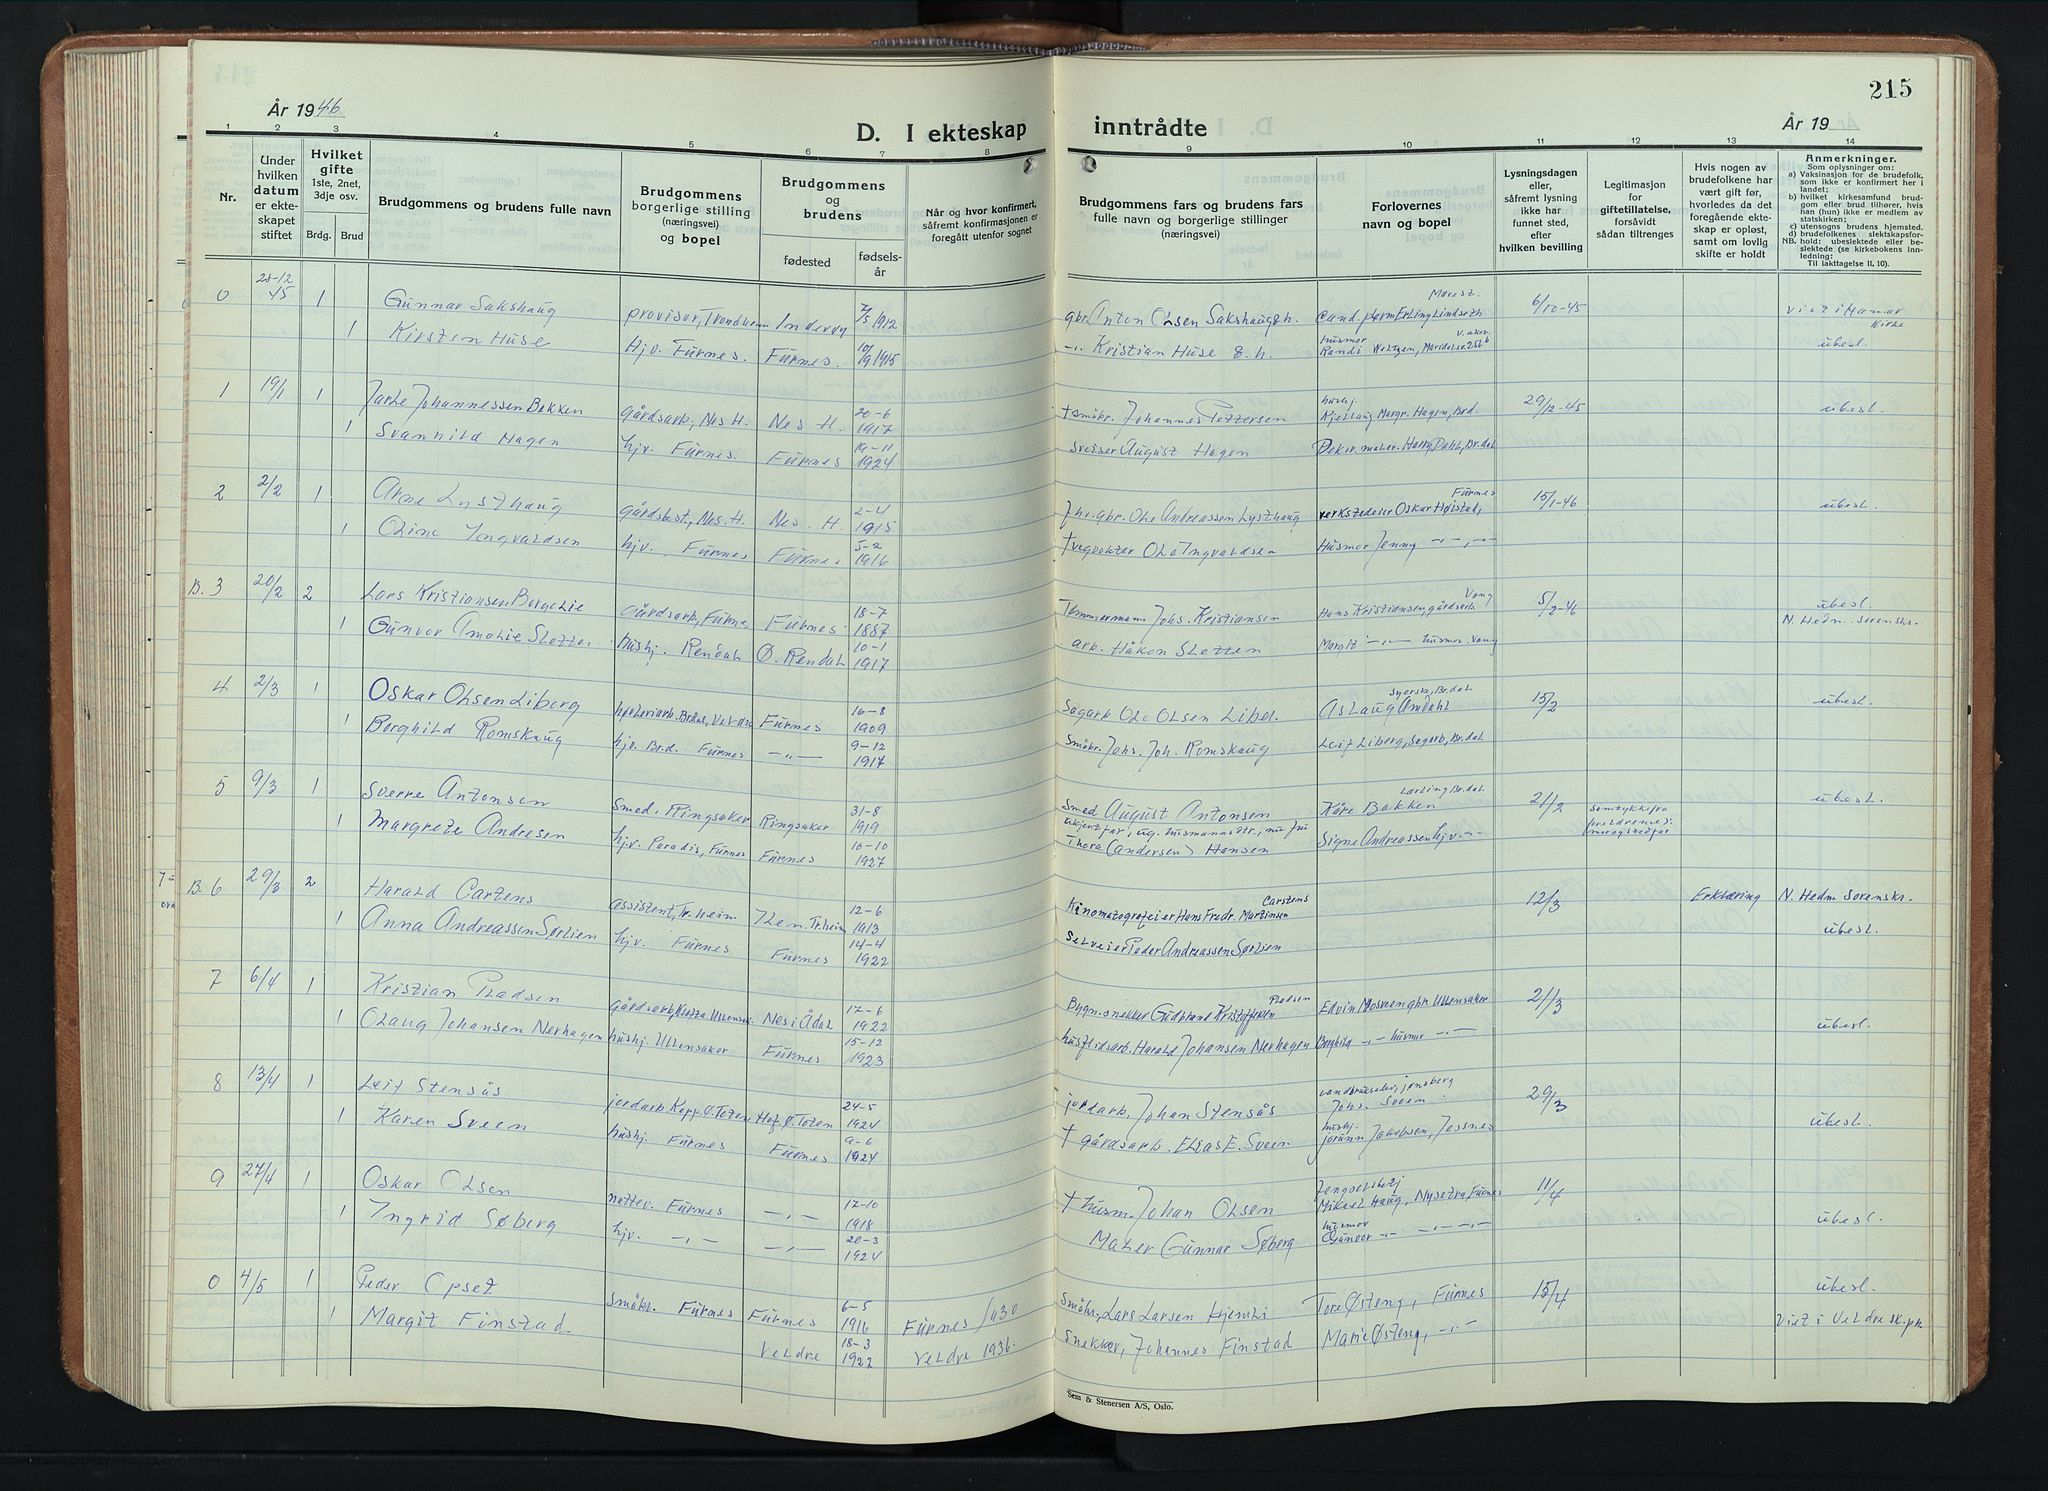 215
År 1946
D. I ekteskap inntrådte
År 19
1 2 3 4 5 6 7 8 9 10 11 12 13 14
Nr.
Under hvilken datum er ekteskapet stiftet
Hvilket gifte 1ste, 2net, 3dje osv.
Brdg. Brud
Brudgommens og brudens fulle navn
Brudgommens borgerlige stilling (næringsvei) og bopel
Brudgommens og brudens
fødested
fødselsår
Når og hvor konfirmert, såfremt konfirmasjonen er foregått utenfor sognet
Brudgommens fars og brudens fars fulle navn og borgerlige stillinger (næringsvei)
Forlovernes navn og bopel
Lysningsdagen eller, såfremt lysning ikke har funnet sted, efter hvilken bevilling
Legitimasjon for giftetillatelse, forsåvidt sådan tiltrenges
Hvis nogen av brudefolkene har vært gift før, hvorledes da det foregående ekteskap er opløst, samt om lovlig skifte er holdt
Anmerkninger.
Som oplysninger om:
a) Vaksinasjon for de brudefolk, som ikke er konfirmert her i landet;
b) hvilket kirkesamfund brudgom eller brud tilhører, hvis han (hun) ikke er medlem av statskirken;
c) utensogns brudens hjemsted.
d) brudefolkenes slektskapsforhold: ubeslektede eller beslektede (se kirkebokens innledning:
NB. Til iakttagelse II. 10).
0 28-12 45 1 Gunnar Sakshaug provisor, Trondheim Inderøy 7/5 1912 gbr. Anton Olsen Sakshaug Cand. pharm Erling Lindseth 6/10-45 viet i Hamar kirke
1 Kirsten Huse Hjv. Furnes. Furnes. 10/9 1915 -"- Kristian Huse husmor Randi ubesl.
1 19/1 1 Jarle Johannessen Bakken gårdsarb, Nes H. Nes H. 20-6 1917 † småbr. Johannes Pettersen hushj. Kjellaug Margr. Hagen, Brd. 29/12-45 ubesl.
1 Svanhild Hagen hjv. Furnes. Furnes 19-11 1924 sveiser August Hagen Dekor. maler. Harry Dahl, Br.dal
2 2/2 1 Arne Lysthaug gårdsbest, Nes. H. Nes. H. 2-4 1915 fhv. gbr. Ole Andreassen Lysthaug verkstedeier Oskar Høistad, Furnes 15/1-46 ubesl.
1 Oline Ingvaldsen hjv. Furnes Furnes 5-2 1916 † vegvokter Ole Ingvaldsen Husmor Jenny -"-, -"-
B. 3 20/2 2 Lars Kristiansen Borgelie Gårdsarb, Furnes Furnes 18-7 1887 Tømmermann Johs. Kristiansen Hans Kristiansen, gårdsarb. Vang 5/2-46 ubesl. N. Hedm. Sorenskr.
1 Gunvor Amalie Sletten hushj. Rendal Ø. Rendal 10-1 1917 arb. Håkon Sletten Margit -"- husmor. Vang
4 2/3 1 Oskar Olsen Liberg Furnes 16-8 1909 Sagarb Ole Olsen Aslaug Amdahl syerske, Br.dal 15/2 ubesl.
1 Borghild Romskaug hjv. Br.d. Furnes -"- 9-12 1917 Småbr. Johs. Joh. Romskaug Leif Liberg, Sagarb, Br.dal
5 9/3 1 Sverre Antonsen Smed, Ringsaker Ringsaker 31-8 1919 Smed August Antonsen Kåre Bakken Lærling Br.dal 21/2 samtykke fra ubesl.
1 Margrete Andresen hjv. Paradis, Furnes Furnes 16-10 1927 Ukjent far, ug. husmannsdtr., nu fru Thora (Andersen) Hansen Signe Andreassen hjv. -"-
B. 6 29/3 2 Harald Cartens assistent, Tr.heim Tr.heim 12-6 1913 Kinomatografeier Hans Fredr. Martinsen Carstens 12/3 Erklæring N. Hedm. Sorenskr.
1 Anna Andreassen Sørlien hjv. Furnes Furnes 14-4 1922 Selveier Peder Andreassen Sørlien ubesl.
7 6/4 1 Kristian Pladsen Nes i Ådal 17-6 1922 Bygn.snekker Gudbrand Kristoffersen Pladsen Edvin Mosveen gbr. Ullensaker 21/3
1 Olaug Johansen Nerhagen hushj. Ullensaker Furnes 15-12 1923 husflidsarb. Harald Johansen Nerhagen Borghild -"- husmor -"- ubesl.
8 13/4 1 Leif Stensås jordarb. Kapp Ø. Toten Hof. Ø. Toten 24-5 1924 jordarb. Johan Stensås Johs. Sveen 29/3
1 Karen Sveen hushj. Furnes Furnes 9-6 1924 † gårdsarb. Elias E. Sveen hushj. Jorunn Jakobsen, Jessnes ubesl.
9 27/4 1 Oskar Olsen nattev. Furnes -"- 17-10 1918 † husm. Johan Olsen fengselsbetj Mikael Haug, Nysetra, Furnes 11/4
1 Ingrid Søberg hjv. -"- -"- 20-3 1924 Maler Gunnar Søberg husmor Gunvor -"- -"- -"- ubesl.
0 4/5 1 Peder Opset Småbr. Furnes Furnes 6-5 1916 Furnes 1930 Småbr, Lars Larsen Hjemli Tore Østeng, Furnes 15/4 ubesl.
1 Margit Finstad. Veldre 18-3 1922 Veldre 1936. Snekker, Johannes Finstad Marie Østeng, -"- Viet i Veldre
Sem & Stenersen A/S, Oslo.